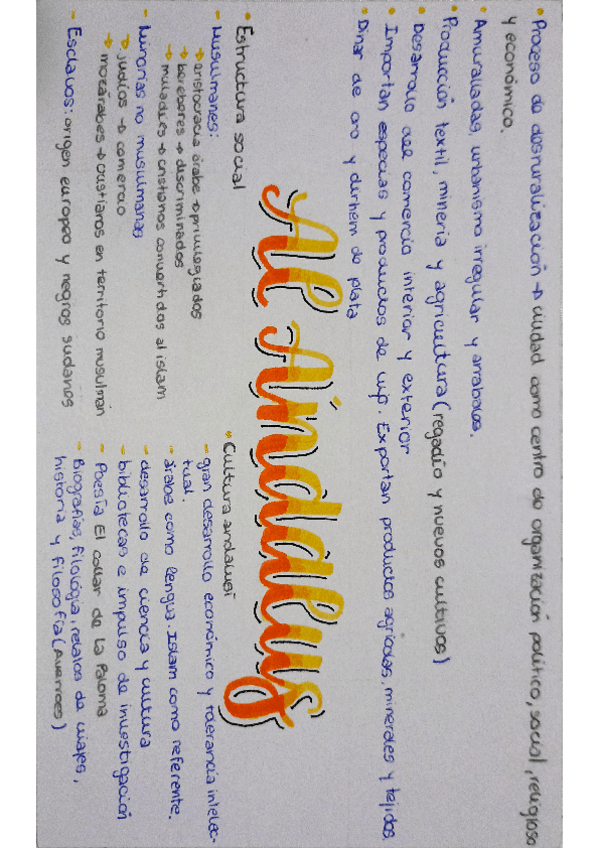 • Proceso de desruralización → ciudad como centro de organización político, social, religioso
y económico.
• Amuralladas, urbanismo irregular y arrabales.
• Producción textil, minería y agricultura (regadío y nuevos cultivos)
• Desarrollo del comercio interior y exterior
• Importan especias y productos de lujo. Exportan productos agrícolas, minerales y tejidos.
• Dinar de oro y dirhem de plata
Al Ándalus
• Estructura social
- Musulmanes:
→ aristocracia árabe → privilegiados
→ bereberes → discriminados
→ muladíes → cristianos convertidos al islam
- Minorías no musulmanas
→ judíos → comercio
→ mozárabes → cristianos en territorio musulmán
- Esclavos: origen europeo y negros sudanos
• Cultura andalusí
- gran desarrollo económico y tolerancia intelec-
tual.
- árabe como lengua. Islam como referente.
- desarrollo de ciencia y cultura
- bibliotecas e impulso de investigación
- Poesía El collar de la Paloma
- Biografías, filología, relatos de viajes,
historia y filosofía (Averroes)